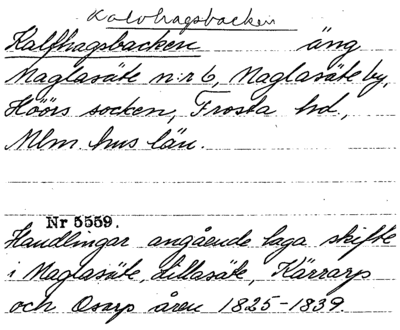 Kalvhagsbacken
Kalfhagsbacken äng
Maglasäte n:r 6, Maglasäte by,
Höörs socken, Frosta hd,
Mlm hus län.
Nr 5559.
Handlingar angående laga skifte
i Maglasäte, Lillasäte, Kärrarp
och Osarp åren 1825-1839.